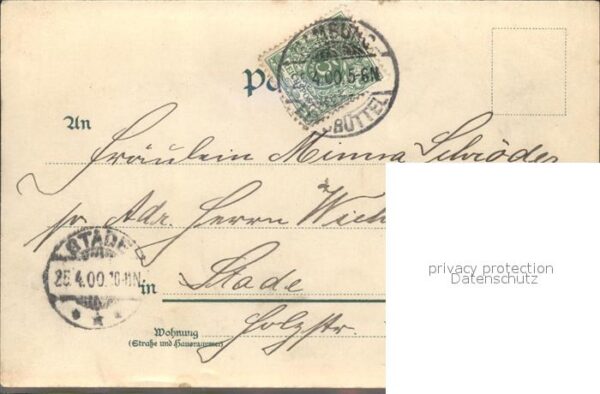 HAMBURG
.4.00.5-6N
BÜTTEL
An
Fräulein Minna Schröder
pr. Adr. Herrn Wich
privacy protection
Datenschutz
STADE
25.4.00.10-11N
in Stade
Holzstr.
Wohnung
(Straße und Hausnummer)